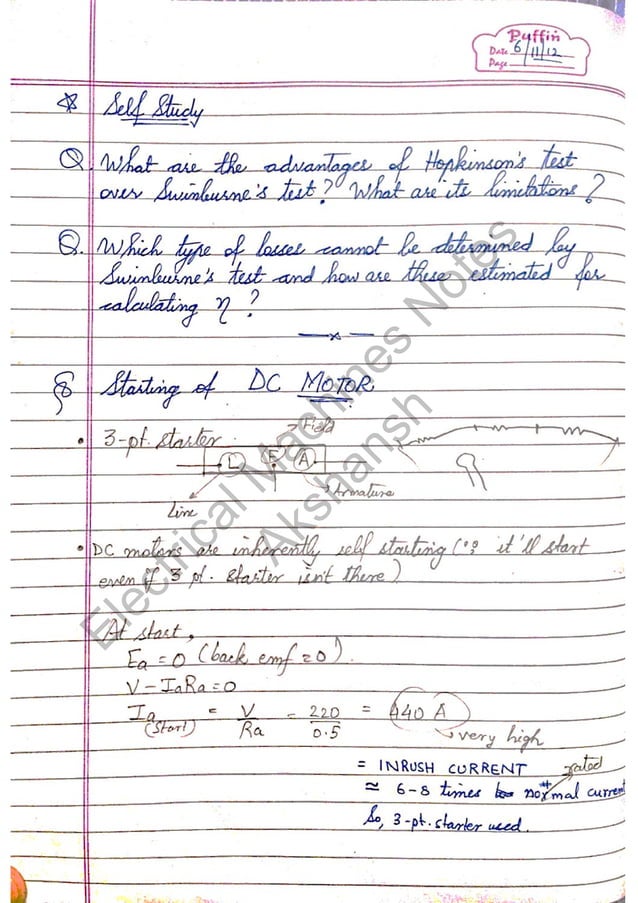 Puffin
Date 6/11/12
Page
Self Study
Q. What are the advantages of Hopkinson's test
over Swinburne's test? What are its limitations?
Q. Which type of losses cannot be determined by
Swinburne's test and how are these estimated for
calculating η?
—x—
§ Starting of DC MOTOR
• 3-pt. starter
→ Field
L F A
Line
→ Armature
• DC motors are inherently self starting (∵ it'll start
even if 3 pt. starter isn't there)
At start,
Ea = 0 (back emf = 0).
V - IaRa = 0
Ia (start) = V/Ra = 220/0.5 = 440 A
→ very high
= INRUSH CURRENT
rated
≈ 6-8 times normal current
So, 3-pt. starter used.
Electrical Machines Notes
Akshansh